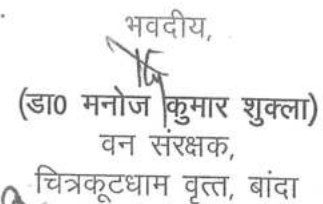 भवदीय,
(डा0 मनोज कुमार शुक्ला)
वन संरक्षक,
चित्रकूटधाम वृत्त, बांदा